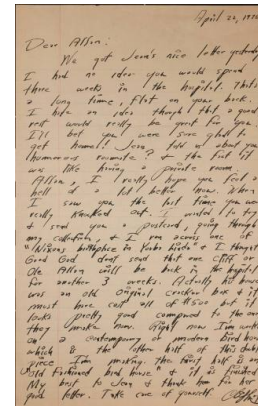 April 22, 19
Dear Alton:
We got Jean's nice letter yesterday
I had no idea you would spend
three weeks in the hospital. That's
a long time, flat on your back.
I hate an idea though that a good
rest would really be great for you
I'll bet you were sure glad to
get home! Jean told us about your
humorous roomate? & the fact it
was like having a private room.
Alton, I really hope you feel a
hell of a lot better now. When
I saw you the last time you were
really knacked out. I wanted to try
& send you a postcard, going through
my collection, & I came across one
"Nixons birthplace in Yorba Linda" & I thought
Good God dont send that one Cliff or
Ole Alton will be back in the hospital
for another 3 weeks. Actually his house
was an old original cracker box & it
must have cost all of $500 but it
looks pretty good compared to the ones
they make now. Right now I'm working
on a contemporary or modern bird house
which is the other half of this
piece I'm making. the first half is an
"old fashioned bird house" & it is finished
My best to Jean & thank him for her
good letter. Take care of yourself.